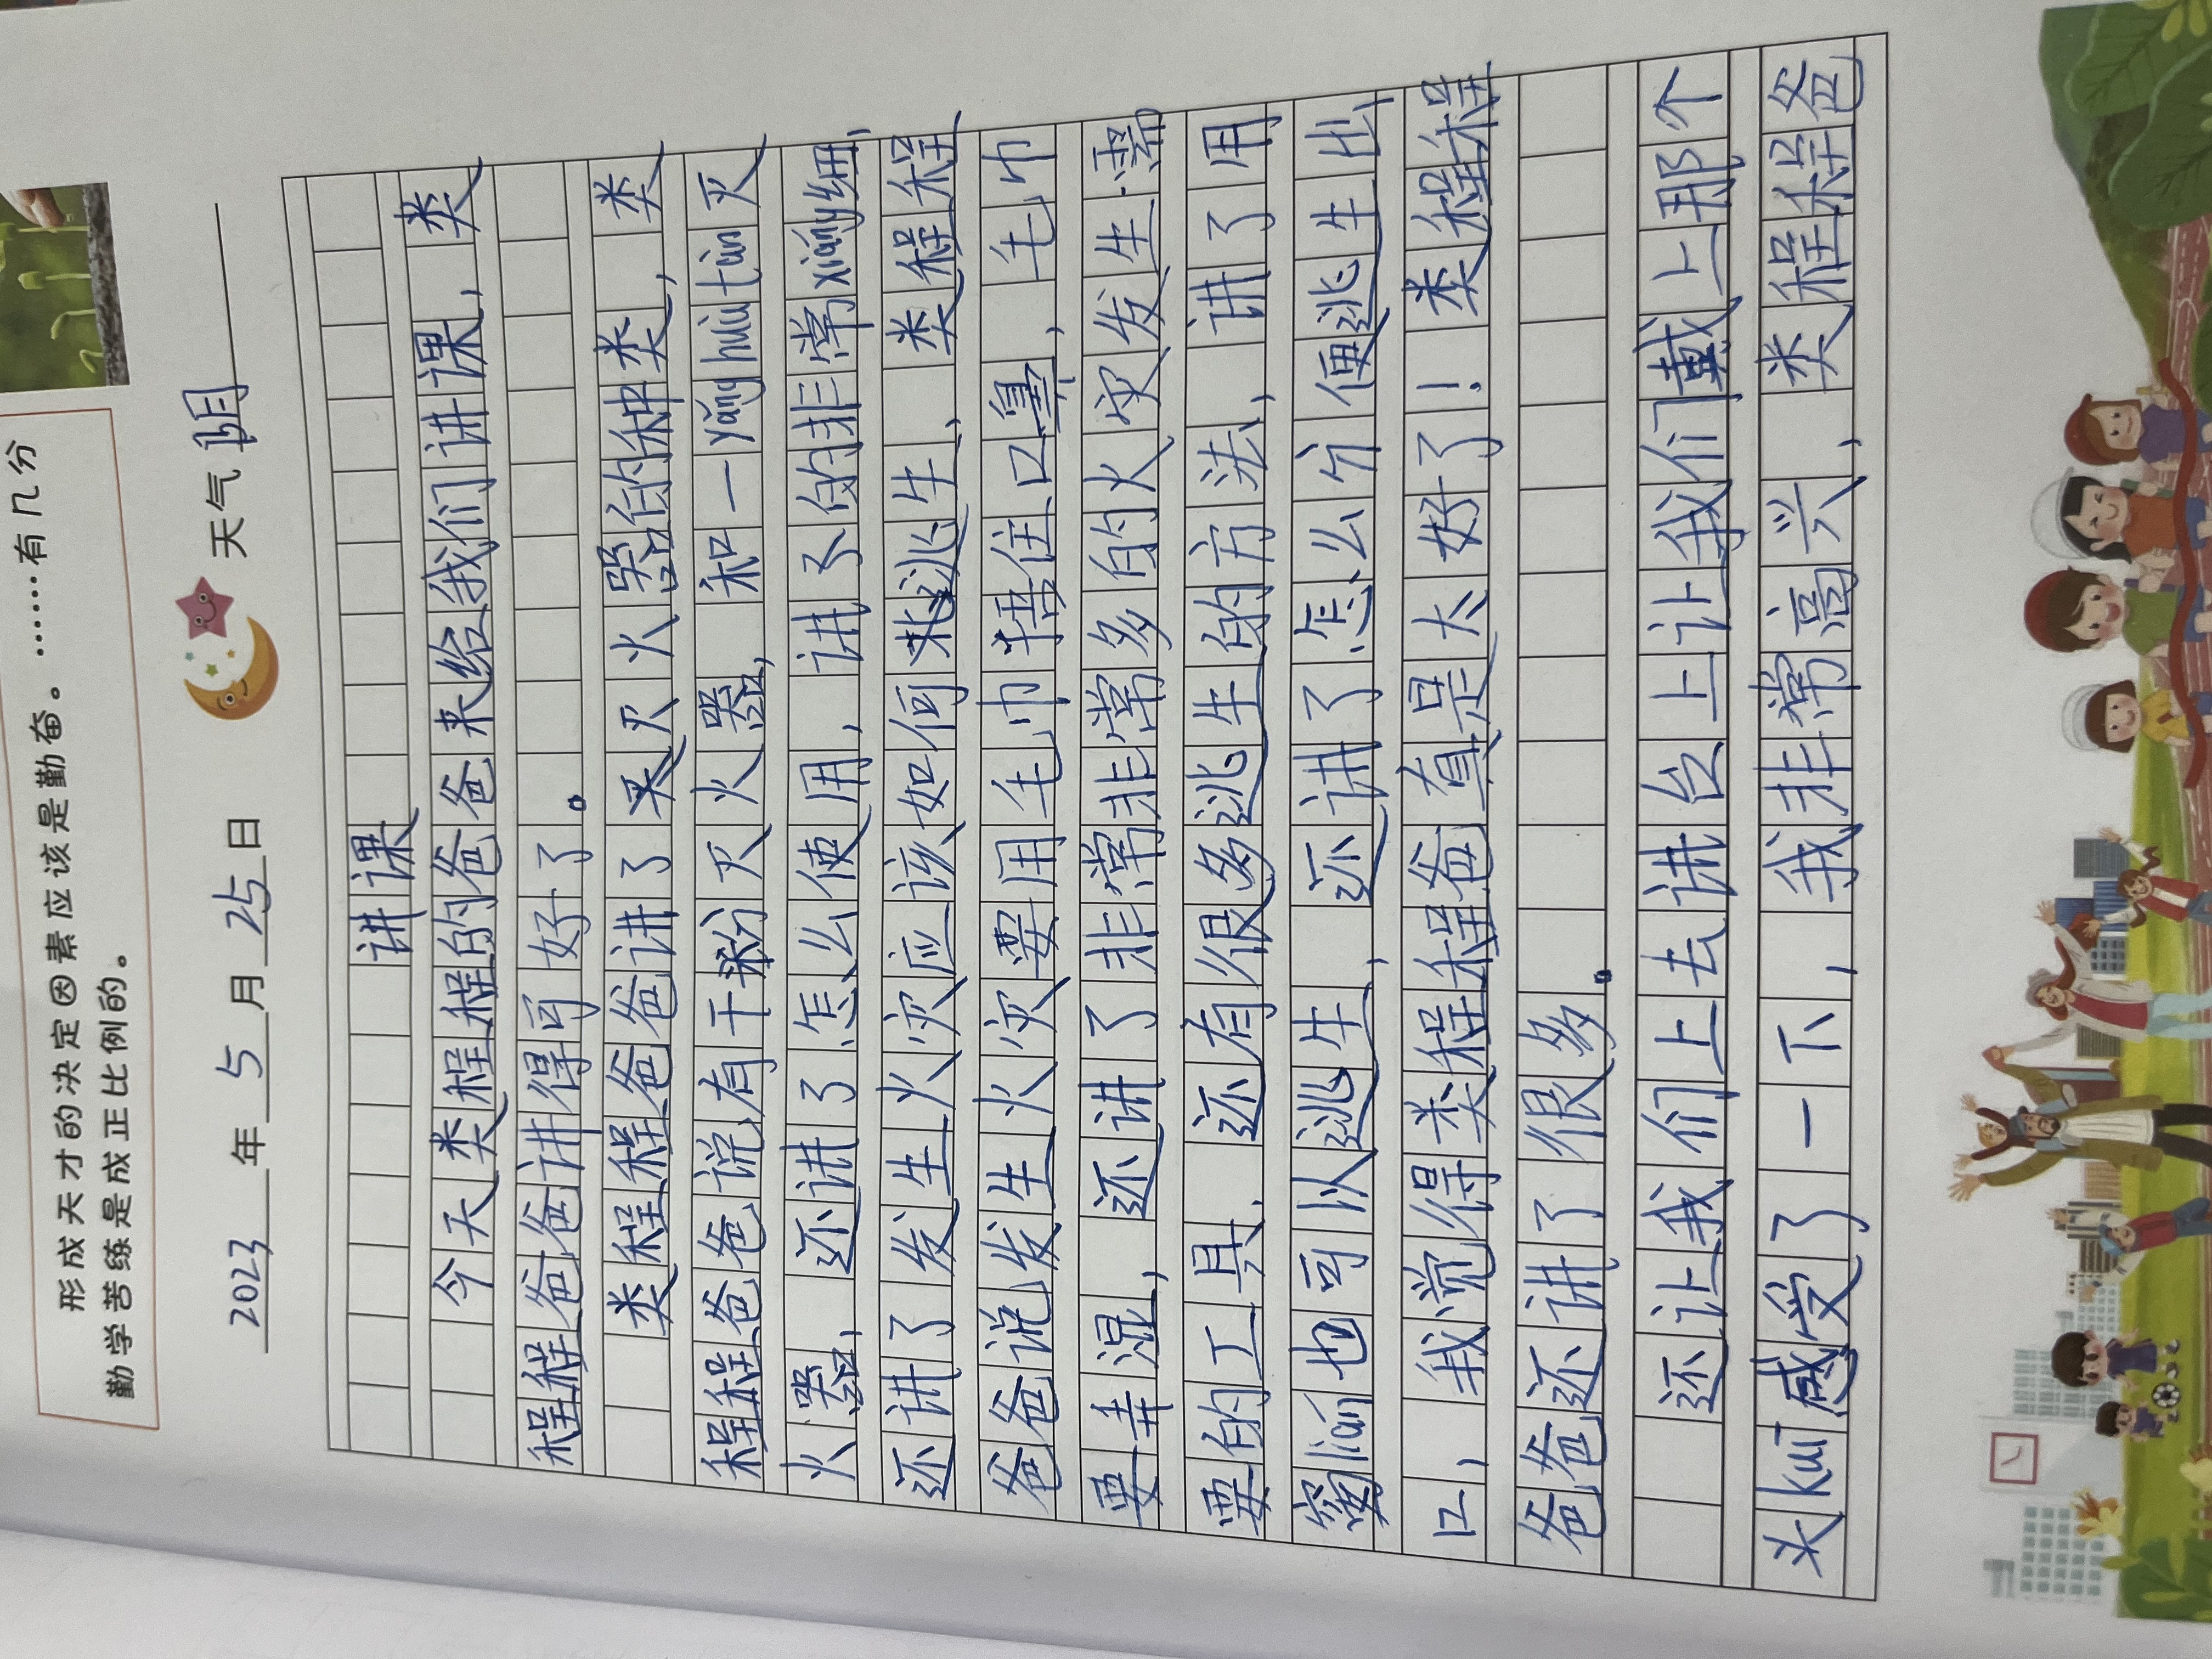 形成天才的决定因素应该是勤奋。……有几分
勤学苦练是成正比例的。
2023年5月25日 天气 阴
讲课
今天类程程的爸爸来给我们讲课,类
程程爸爸讲得可好了。
类程程爸爸讲了灭火器的种类,类
程程爸爸说有干粉灭火器,和一yǎng huà tàn灭
火器,还讲了怎么使用,讲了的非常xiáng细,
还讲了发生火灾应该如何逃生,类程程
爸爸说发生火灾要用毛巾捂住口鼻,毛巾
要弄湿,还讲了非常非常多的火灾发生需
要的工具,还有很多逃生的方法,讲了用
窗lián也可以逃生,还讲了怎么分便逃生出
口,我觉得类程程程爸真是太好了!类程程
爸爸还讲了很多。
还让我们上去讲台上让我们戴上那个
头kuī感受了一下,我非常高兴,类程程爸